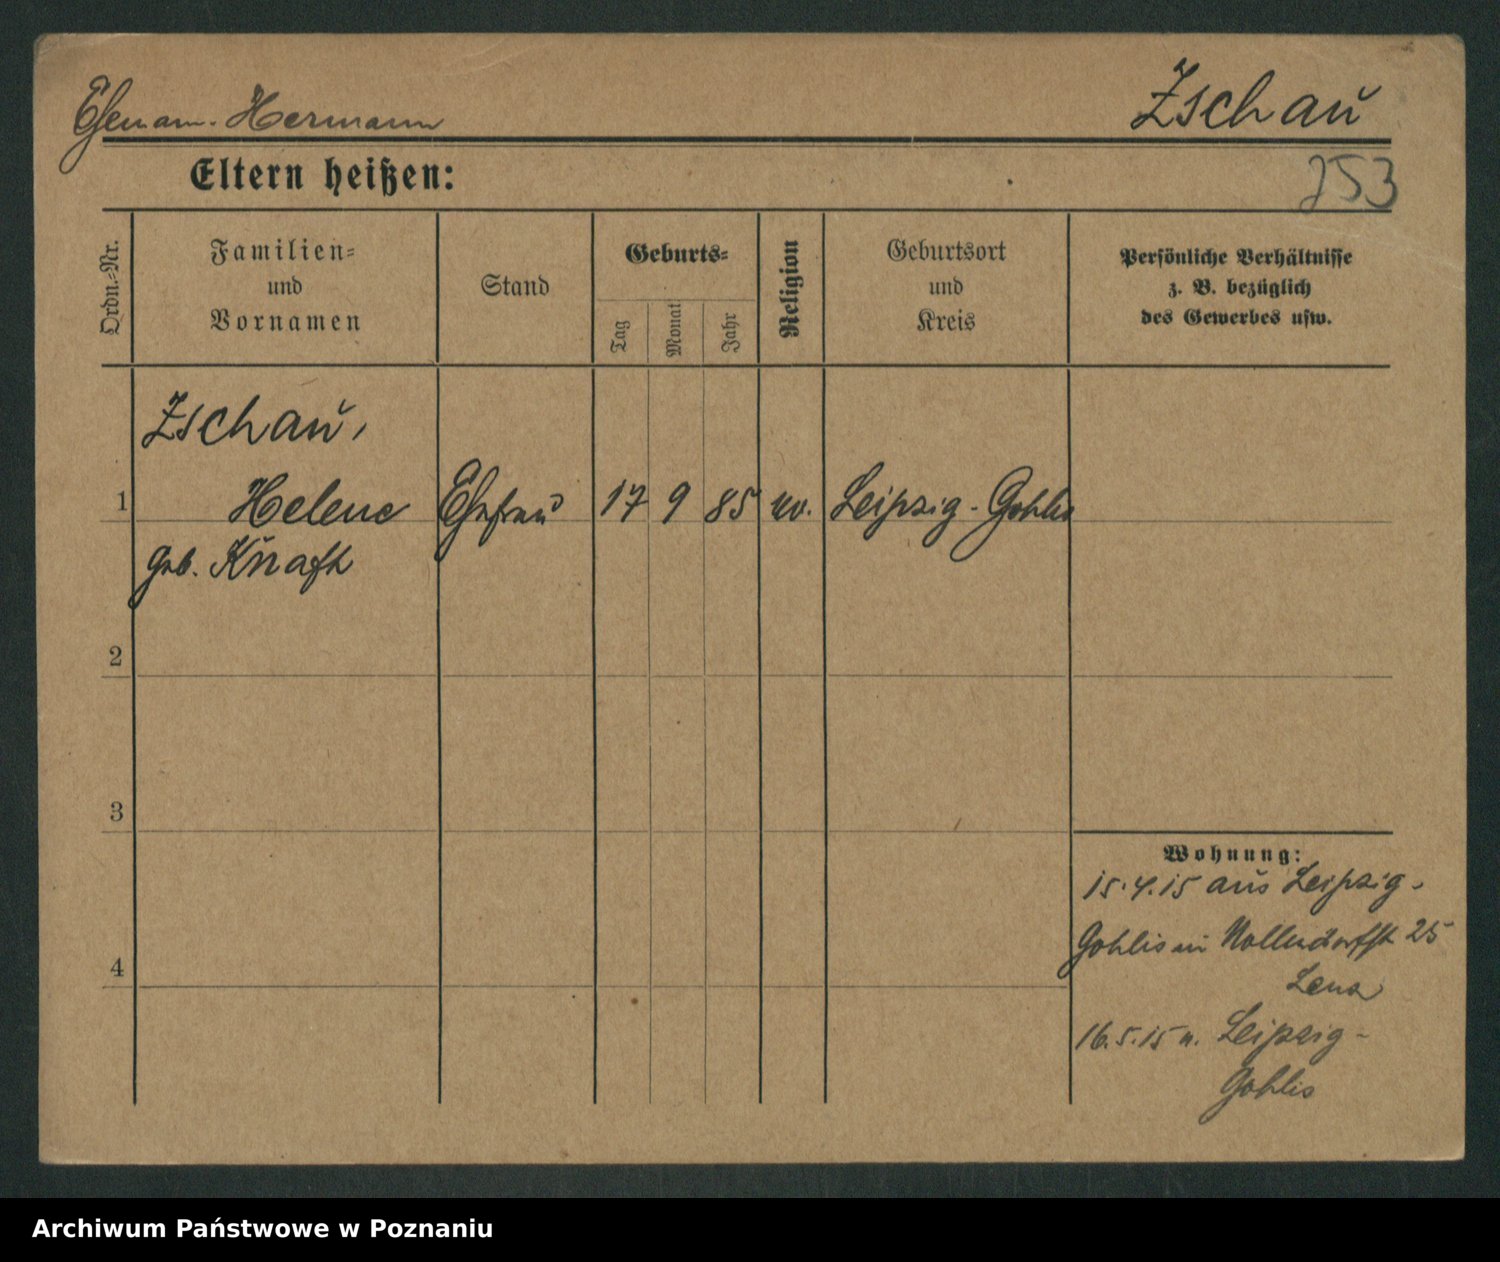 Ehemann. Hermann
Zschau
Eltern heißen:
253
Ordn.-Nr.
Familien-
und
Vornamen
Stand
Geburts-
Tag
Monat
Jahr
Religion
Geburtsort
und
Kreis
Persönliche Verhältnisse
z. B. bezüglich
des Gewerbes usw.
Zschau,
1 Helene Ehefrau 17 9 85 ev. Leipzig-Gohlis
geb. Knafk
2
3
Wohnung:
15.4.15 aus Leipzig-
Gohlis in Nollendorfstr 25
4
16.5.15 n. Leipzig-
Gohlis
Archiwum Państwowe w Poznaniu